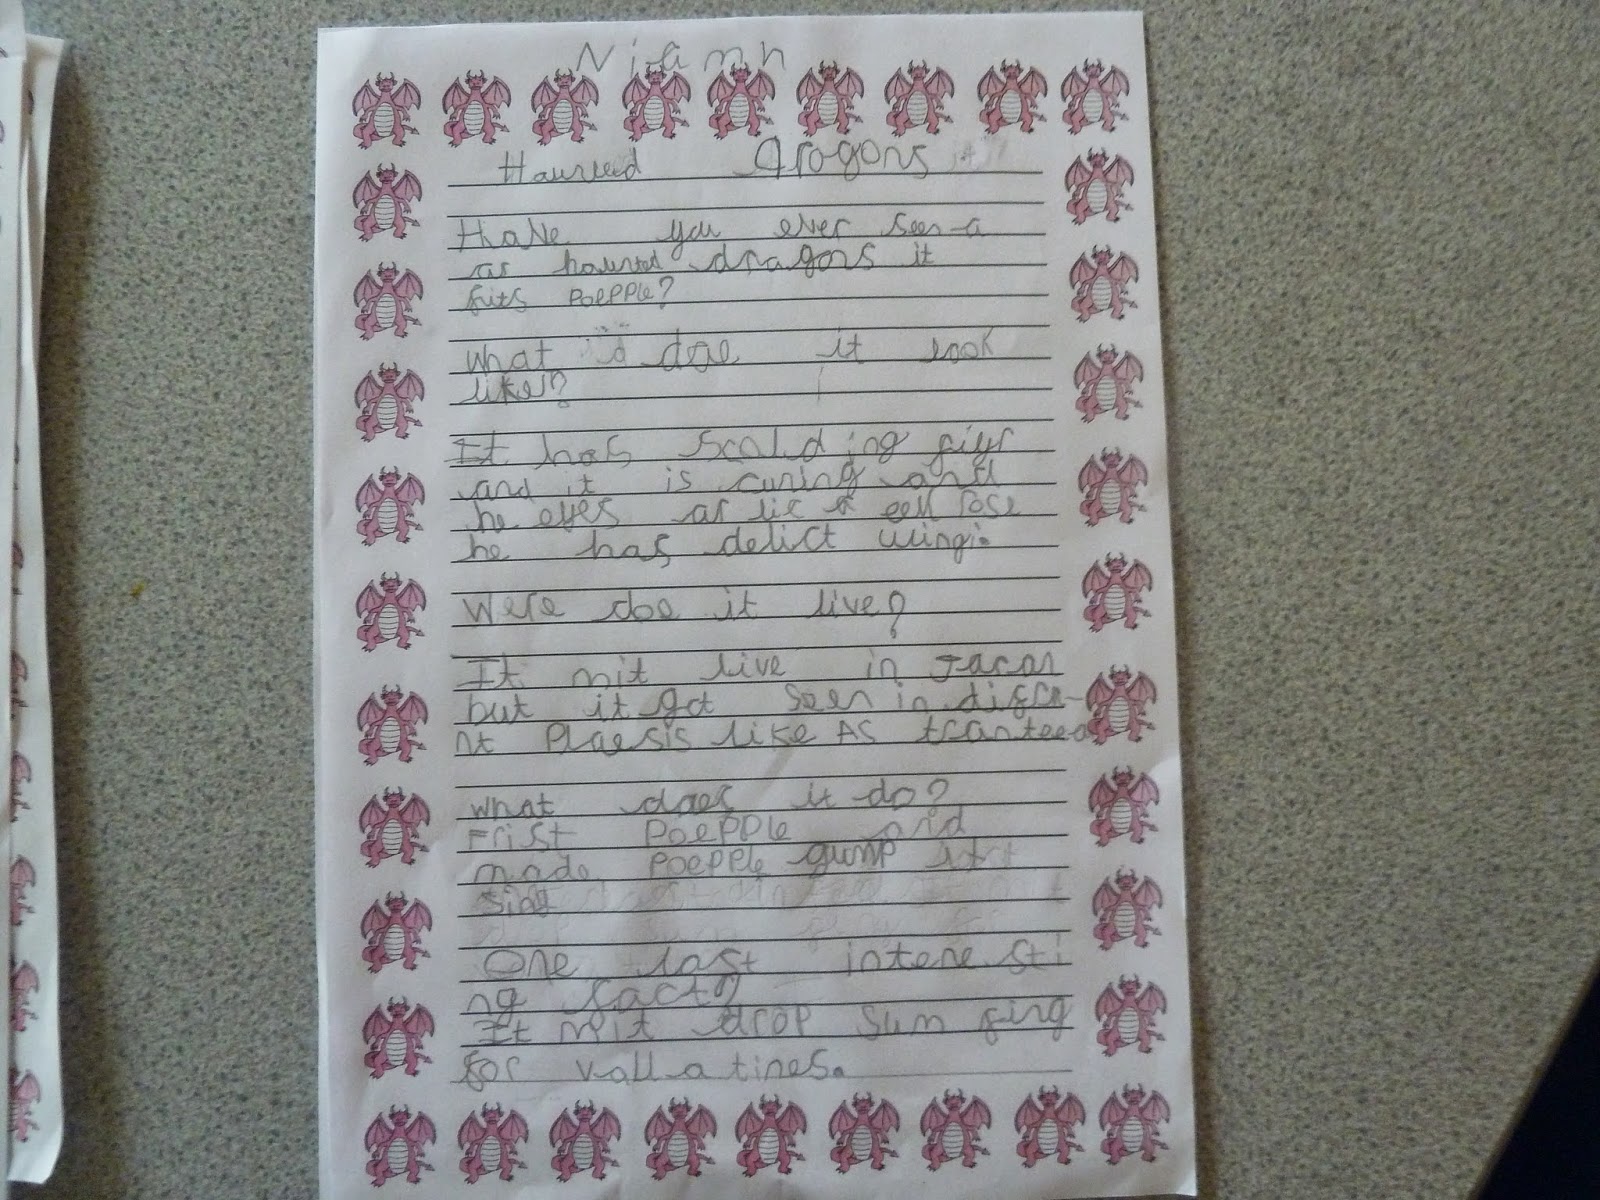 Niamh
Haunted dragons
Have you ever seen a
ar haunted dragons it
frits poepple?
What doe it look
like?
It has scalding fiyr
and it is cuning and
he eyes ar lic a
he has delict wings.
Were doe it live?
It mit live in
but it got seen in diffre-
nt plaesis like As
What does it do?
Frist poepple and
made poepple gump
sing
One last interesti
ng fact?
It mit drop sum fing
for vallatines.